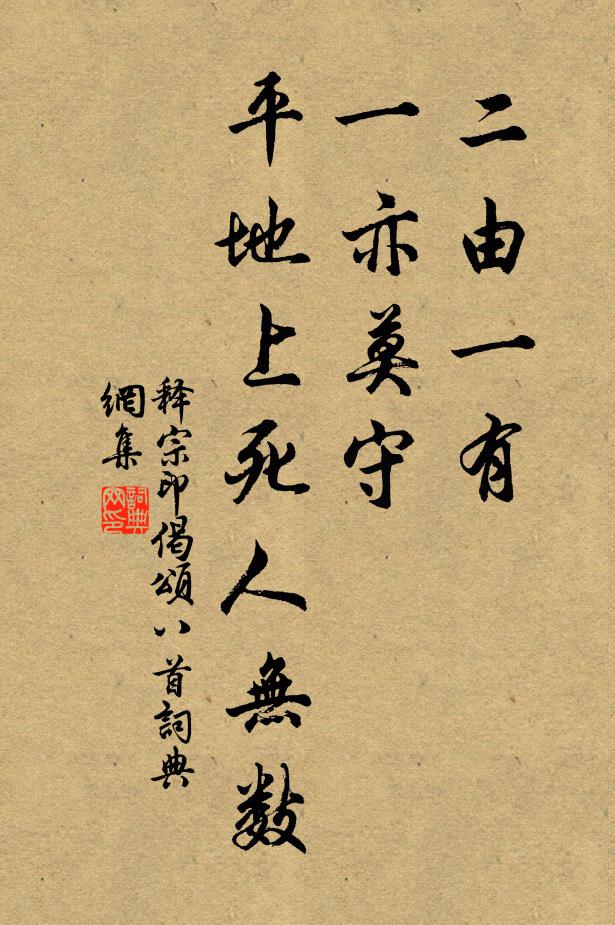 二由一有
一亦莫守
平地上死人無数
释宗印偈頌八首詞典
網集
詞典
网印